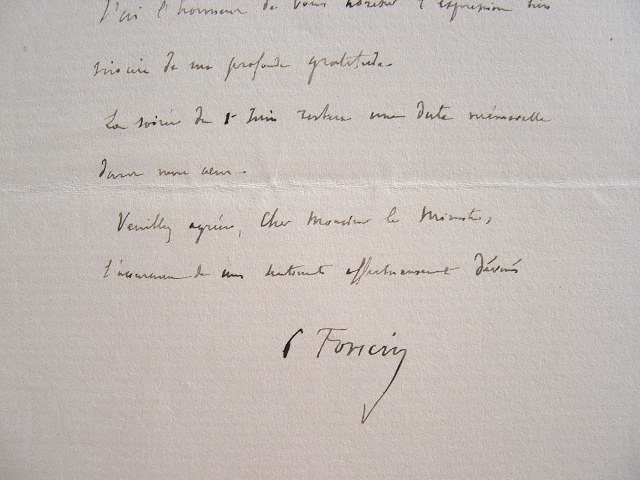 J'ai l'honneur de vous adresser l'expression très
sincère de ma profonde gratitude.
La soirée du 1er Juin restera une date mémorable
dans mon cœur.
Veuillez agréer, Cher Monsieur le Ministre,
l'assurance de mes sentiments affectueusement dévoués